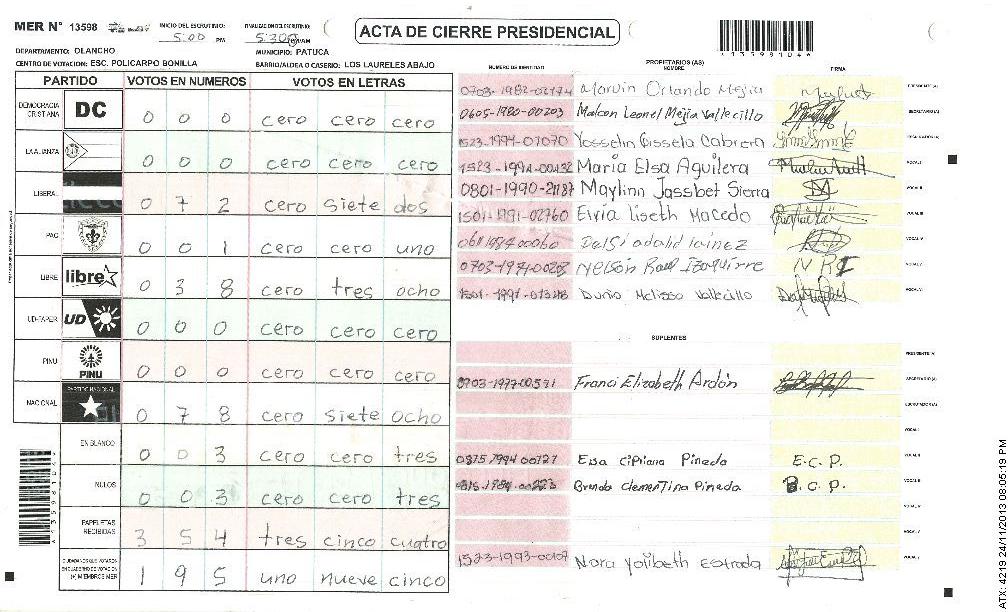 MER N° 13598
INICIO DEL ESCRUTINIO:
5:00 PM
FINALIZACION DEL ESCRUTINIO:
ACTA DE CIERRE PRESIDENCIAL
DEPARTAMENTO: OLANCHO
MUNICIPIO: PATUCA
CENTRO DE VOTACION: ESC. POLICARPO BONILLA
BARRIO/ALDEA O CASERIO: LOS LAURELES ABAJO
PARTIDO VOTOS EN NUMEROS VOTOS EN LETRAS
DEMOCRACIA CRISTIANA DC 0 0 0 cero cero cero
LA ALIANZA 0 0 0 cero cero cero
LIBERAL 0 7 2 cero siete dos
PAC 0 0 1 cero cero uno
LIBRE libre 0 3 8 cero tres ocho
UD-FAPER UD 0 0 0 cero cero cero
PINU PINU 0 0 0 cero cero cero
NACIONAL PARTIDO NACIONAL 0 7 8 cero siete ocho
EN BLANCO 0 0 3 cero cero tres
NULOS 0 0 3 cero cero tres
PAPELETAS RECIBIDAS 3 5 4 tres cinco cuatro
CIUDADANOS QUE VOTARON EN CUADERNO DE VOTACION (+) MIEMBROS MER 1 9 5 uno nueve cinco
PROPIETARIOS (AS)
NUMERO DE IDENTIDAD NOMBRE FIRMA
0703-1982-02174 Marvin Orlando Mejia PRESIDENTE(A)
0605-1980-00203 Malcon Leonel Mejia Vallecillo SECRETARIO(A)
1523-1994-01070 Yosselin Gissela Cabrera ESCRUTADOR(A)
1523-1991-00132 Maria Elsa Aguilera VOCAL I
0801-1990-21187 Maylinn Jassbet Sierra VOCAL II
1501-1991-02760 Elvia liseth Macedo VOCAL III
0611 1984 00060 VOCAL IV
Nelson Raul Izaguirre N R I VOCAL V
Melissa Vallecillo VOCAL VI
SUPLENTES
PRESIDENTE (A)
0703-1977-00531 Franci Elizabeth Ardón SECRETARIO(A)
ESCRUTADOR(A)
VOCAL I
0815 1994 00127 Elsa Cipriana Pineda E.C.P. VOCAL II
0815-1989-00223 Brenda Clementina Pineda B.C.P. VOCAL III
VOCAL IV
VOCAL V
1523-1993-00107 Nora Yolibeth estrada
A13598104
ATX: 4219 24/11/2013 08:05:19 PM